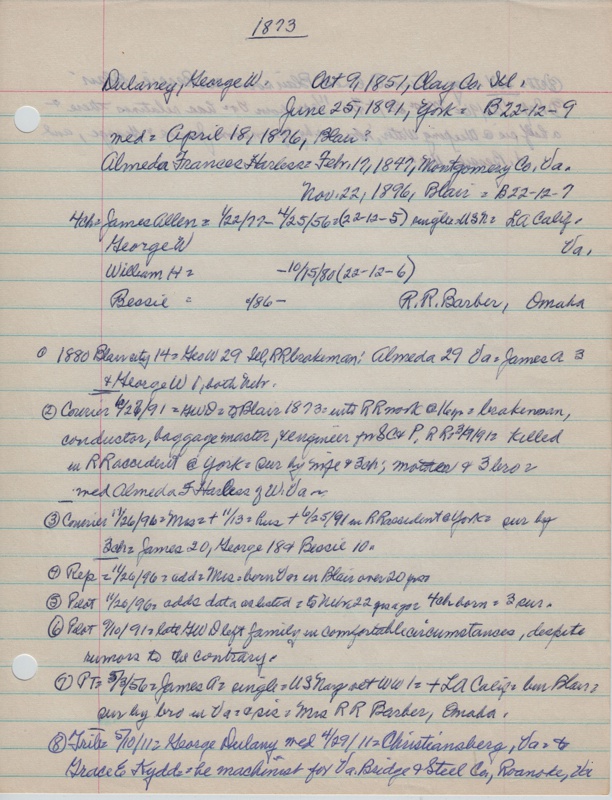 1873
Dulaney, George W. Oct 9, 1851, Clay Co, Ill.
June 25, 1891, York = B22-12-9
med = April 18, 1876, Blair?
Almeda Frances Harless = Febr. 17, 1847, Montgomery Co, Va.
Nov. 22, 1896, Blair = B22-12-7
4ch = James Allen = 1/22/77 - 4/25/56 = (22-12-5) single = USN = LA Calif.
George W Va.
William H = - 10/15/80 (22-12-6)
Bessie = /86 - R.R. Barber, Omaha
① 1880 Blair city 14 = Geo W 29 Ill, RR brakeman; Almeda 29 Va = James A 3
& George W 1, both Nebr.
② Courier 6/ /91 = GWD = to Blair 1873 = into RR work @ 16 yrs = brakeman,
conductor, baggage master, & engineer for SC & P, RR = killed
in RR accident @ York = sur by wife & 3ch; mother & 3 bro =
med Almeda F Harless of W. Va ~
③ Courier 11/26/96 = Mrs = + 11/13 = hus + 6/25/91 in RR accident @ York = sur by
3ch = James 20, George 18 & Bessie 10.
④ Rep = 11/26/96 = add = Mrs = born Va = in Blair over 20 yrs
⑤ Pilot 11/26/96 = adds data as listed = to Nebr 22 yrs ago = 4ch born = 3 sur.
⑥ Pilot 9/10/91 = late GWD left family in comfortable circumstances, despite
rumors to the contrary.
⑦ PT = 5/3/56 = James A = single = US Navy vet WW 1 = + LA Calif = bur Blair =
sur by bro in Va = & sis = Mrs R R Barber, Omaha.
⑧ Trib = 5/10/11 = George Dulany med 4/29/11 = Christiansberg, Va = to
Grace E Kydd = he machinist for Va. Bridge & Steel Co, Roanoke, Va